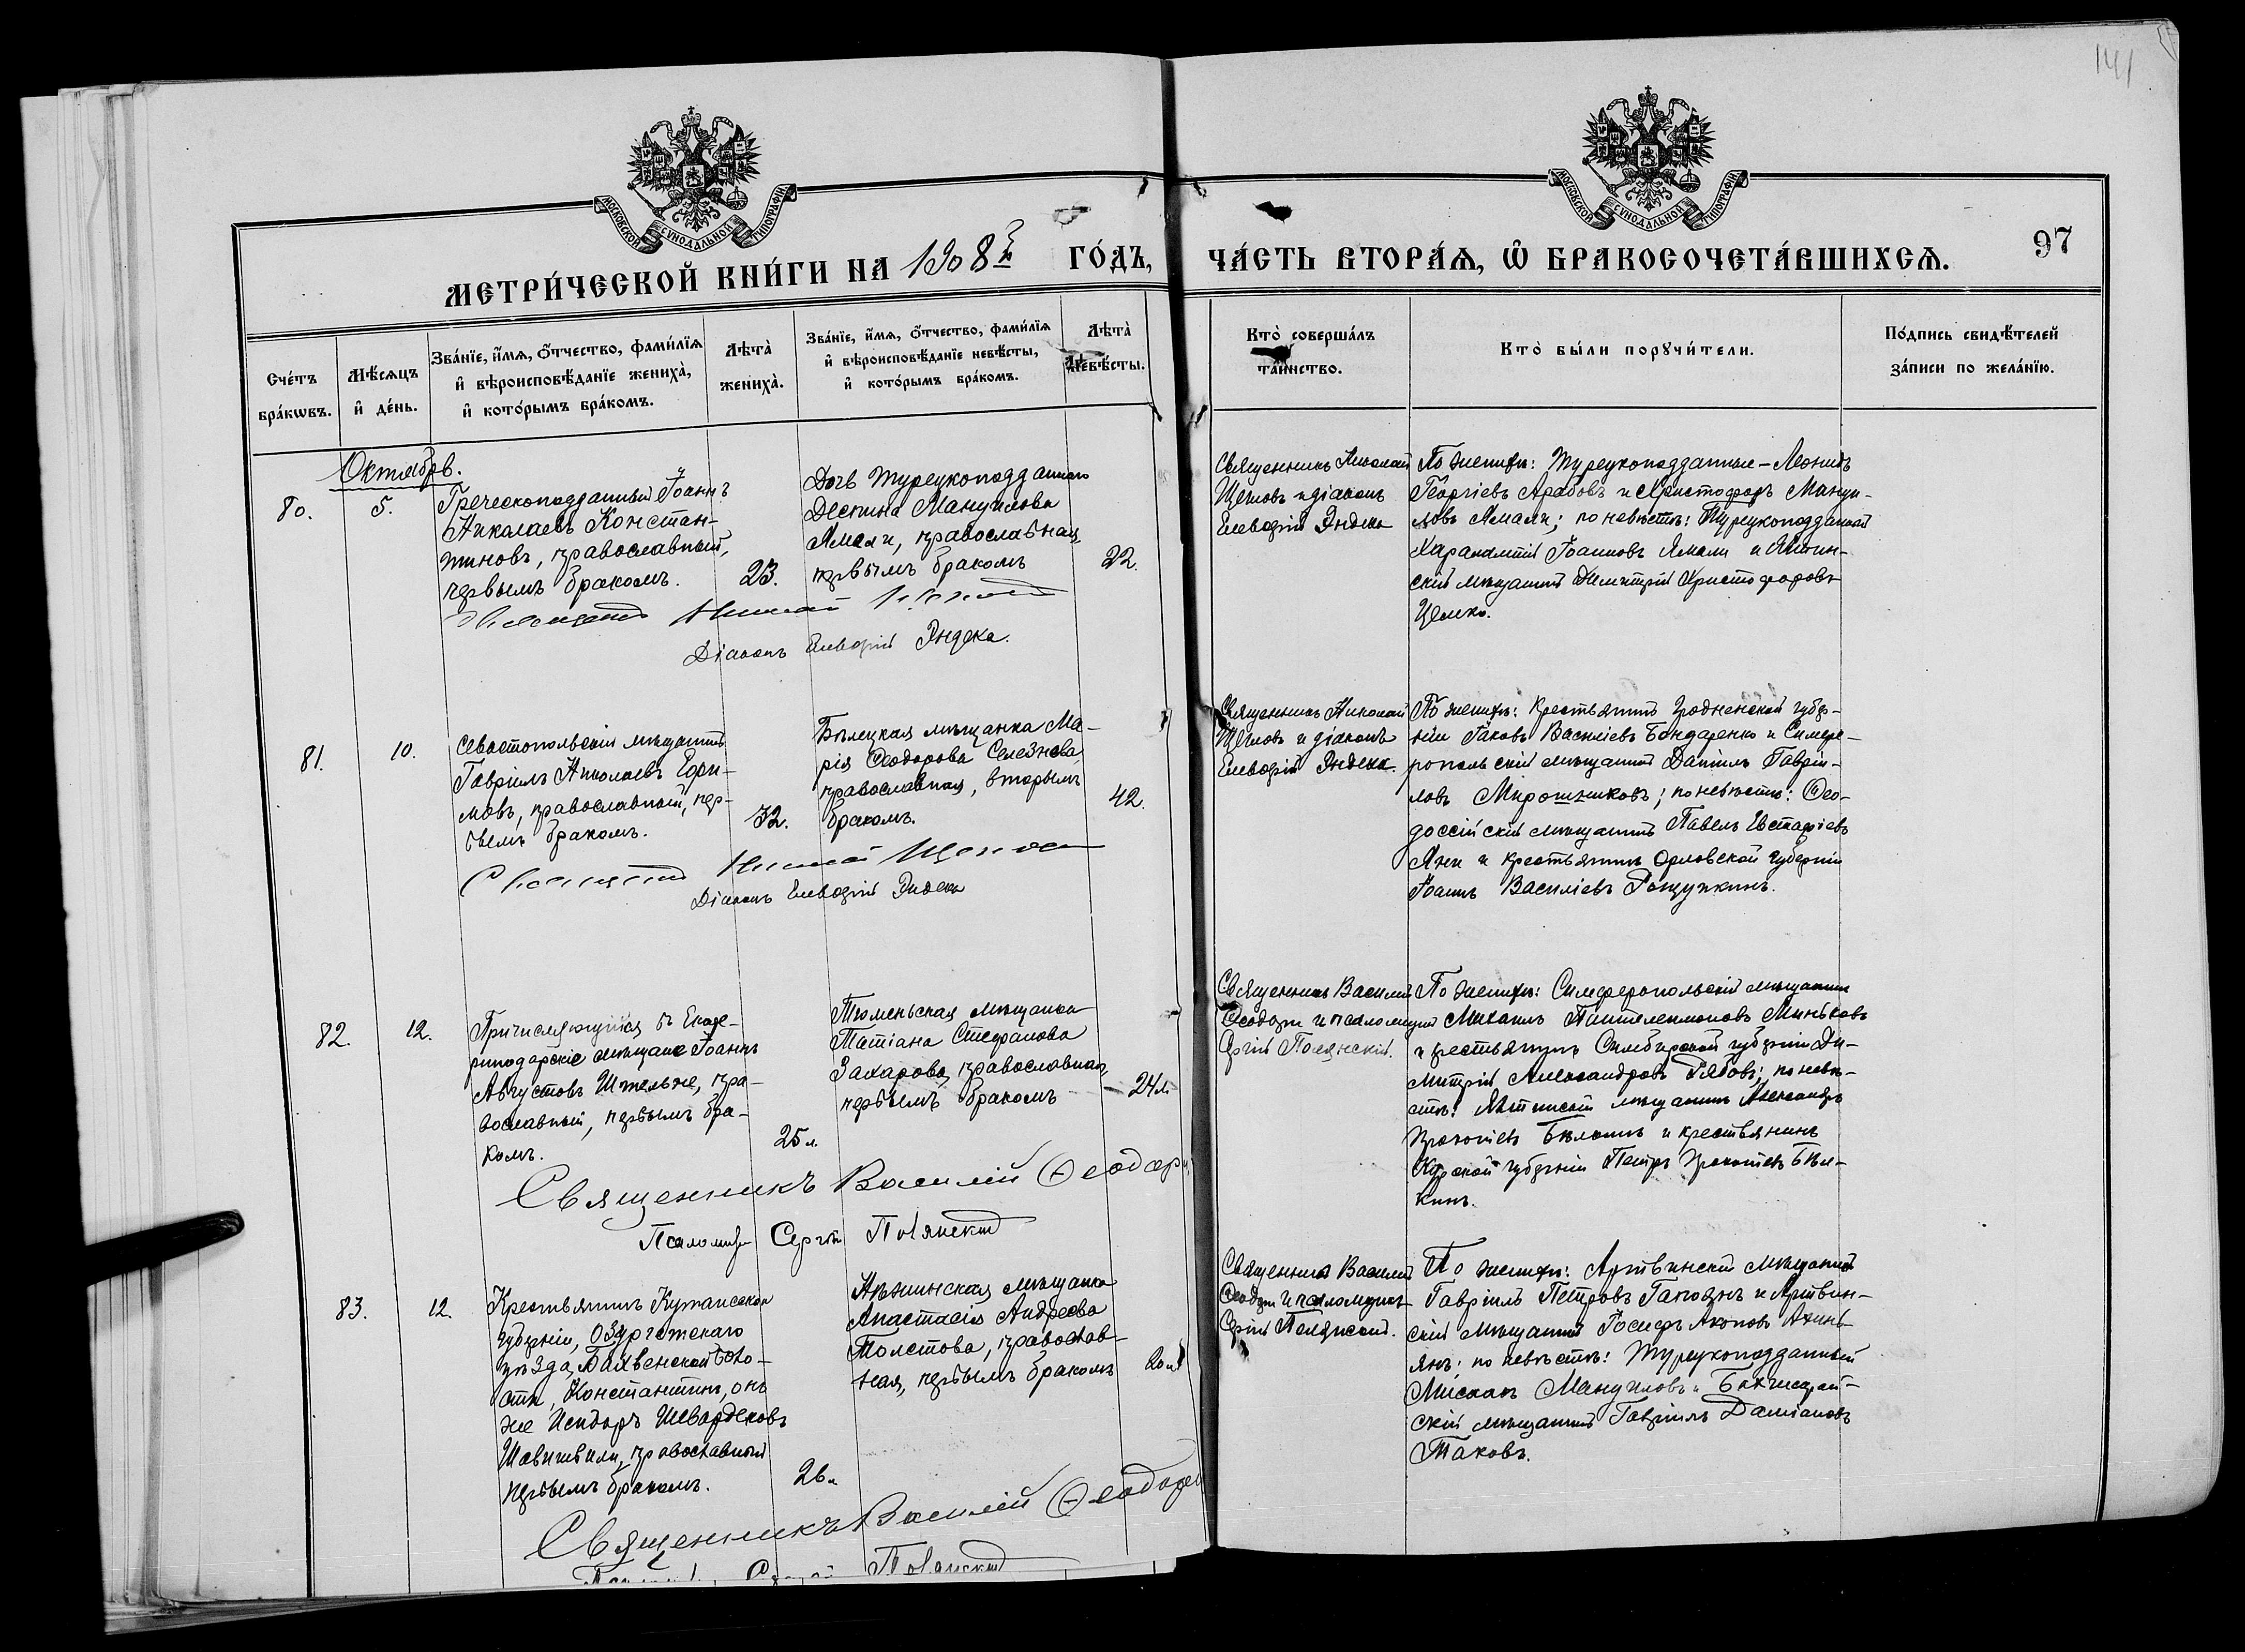 141
МОСКОВСКОЙ СѴНОДАЛЬНОЙ ТИПОГРАФІИ
МОСКОВСКОЙ СѴНОДАЛЬНОЙ ТИПОГРАФІИ
МЕТРИ́ЧЕСКОЙ КНИ́ГИ НА 1908й ГО́ДЪ,
ЧА́СТЬ ВТОРА́Ѧ, Ѽ БРАКОСОЧЕТА́ВШИХСѦ.
97
Сче́тъ бра́кѡвъ.
Мѣ́сѧцъ и҆ де́нь.
Зва́нїе, и҆́мѧ, ѻ҆́тчество, фами́лїѧ
и҆ вѣроисповѣ́данїе жениха̀,
и҆ кото́рымъ бра́комъ.
Лѣта̀ жениха̀.
Зва́нїе, и҆́мѧ, ѻ҆́тчество, фами́лїѧ
и҆ вѣроисповѣ́данїе невѣ́сты,
и҆ кото́рымъ бра́комъ.
Лѣта̀ невѣ́сты.
Кто̀ соверша́лъ
та́инство.
Кто̀ бы́ли порꙋчи́тели.
По́дпись свидѣ́телей
за́писи по жела́нїю.
Октябрь.
80.
5.
Греческоподданный Іоаннъ
Николаевъ Констан-
тиновъ, православный,
первымъ бракомъ.
23.
Дочь турецкоподданнаго
Деспина Мануилова
Ямали, православная,
первымъ бракомъ
22.
Священникъ Николай
Щегловъ и діаконъ
Елевѳерій Эндека
По женихѣ: Турецкоподданные – Леонидъ
Георгіевъ Арабовъ и Христофоръ Мануи-
ловъ Ямали; по невѣстѣ: Турецкоподданный
Харалампій Іоанновъ Ямали и Ялтин-
скій мѣщанинъ Димитрій Христофоровъ
Цемко.
Діаконъ Елевѳерій Эндека.
81.
10.
Севастопольскій мѣщанинъ
Гавріилъ Николаевъ Ефи-
мовъ, православный, пер-
вымъ бракомъ.
32.
мѣщанка Ма-
рія Ѳеодорова Селезнева,
православная, вторымъ
бракомъ.
42.
Священникъ Николай
Щегловъ и діаконъ
Елевѳерій Эндека.
По женихѣ: Крестьянинъ Гродненской губер-
ніи Іаковъ Василіевъ Бондаренко и Симфе-
ропольскій мѣщанинъ Даніилъ Гавріи-
ловъ Мирошниковъ; по невѣстѣ: Ѳео-
доссійскій мѣщанинъ Павелъ Евстафіевъ
и крестьянинъ Орловской губерніи
Іоаннъ Василіевъ Рощупкинъ.
Діаконъ Елевѳерій Эндека
82.
12.
Причисляющійся въ Екате-
ринодарскіе мѣщане Іоаннъ
Августовъ Штельце, пра-
вославный, первымъ бра-
комъ.
25 л.
Тюменьская мѣщанка
Татіана Стефанова
Захарова, православная,
первымъ бракомъ
24 л.
Священникъ Василій
Ѳеодори и псаломщикъ
Сергій Полянскій.
По женихѣ: Симферопольскій мѣщанинъ
Михаилъ Пантелеимоновъ Миньковъ
и крестьянинъ Симбирской губерніи Ди-
митрій Александровъ Рябовъ; по невѣ-
стѣ: Ялтинскій мѣщанинъ Александръ
Прокопіевъ и крестьянинъ
Курской губерніи Петръ Прокопіевъ Бѣл-
кинъ.
Священникъ Василій Ѳеодори
Псаломщ Сергій Полянскій
83.
12.
Крестьянинъ Кутаисской
губерніи, Озургетскаго
уѣзда, Бахвенской воло-
сти, Константинъ, онъ
же Исидоръ Шевардековъ
православный
первымъ бракомъ.
26 л.
Нѣжинская мѣщанка
Анастасія Андреева
Толстова, православ-
ная, первымъ бракомъ
20 л.
Священникъ Василій
Ѳеодори и псаломщикъ
Сергій Полянскій.
По женихѣ: Артвинскій мѣщанинъ
Гавріилъ Петровъ и Артвин-
скій мѣщанинъ Іосифъ Акоповъ
янъ; по невѣстѣ: Турецкоподданный
Мануиловъ и Бахчисарай-
скій мѣщанинъ Гавріилъ Даміановъ
Таковъ.
Священникъ Василій Ѳеодори
Полянскій